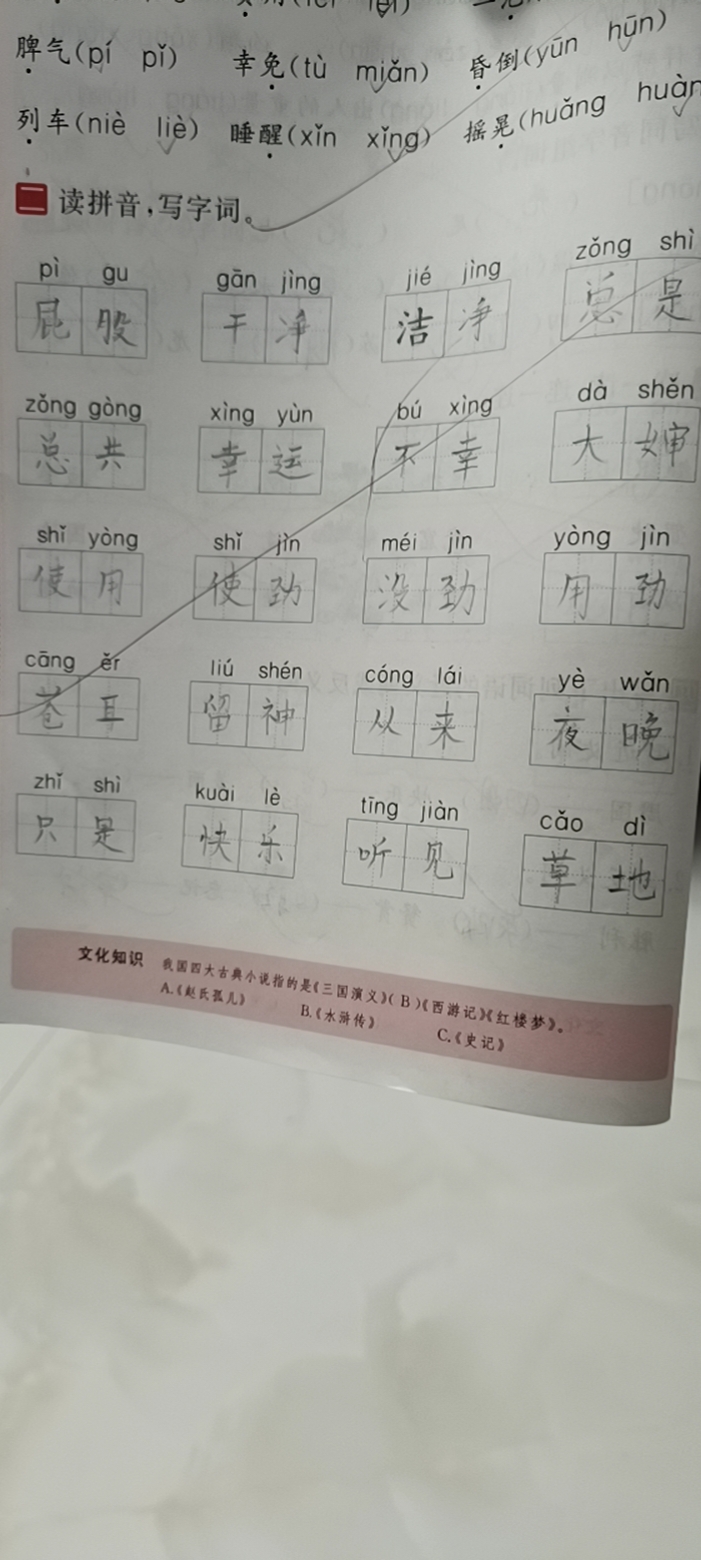 脾气(pí pǐ) 幸免(tù miǎn) 昏倒(yūn hūn)
列车(niè liè) 睡醒(xǐn xǐng) 摇晃(huǎng huàn
二 读拼音,写字词。
pì gu gān jìng jié jìng zǒng shì
屁股 干净 洁净 总是
zǒng gòng xìng yùn bú xìng dà shěn
总共 幸运 不幸 大婶
shǐ yòng shǐ jìn méi jìn yòng jìn
使用 使劲 没劲 用劲
cāng ěr liú shén cóng lái yè wǎn
苍耳 留神 从来 夜晚
zhǐ shì kuài lè tīng jiàn cǎo dì
只是 快乐 听见 草地
文化知识 我国四大古典小说指的是《三国演义》( B )《西游记》《红楼梦》。
A.《赵氏孤儿》 B.《水浒传》 C.《史记》